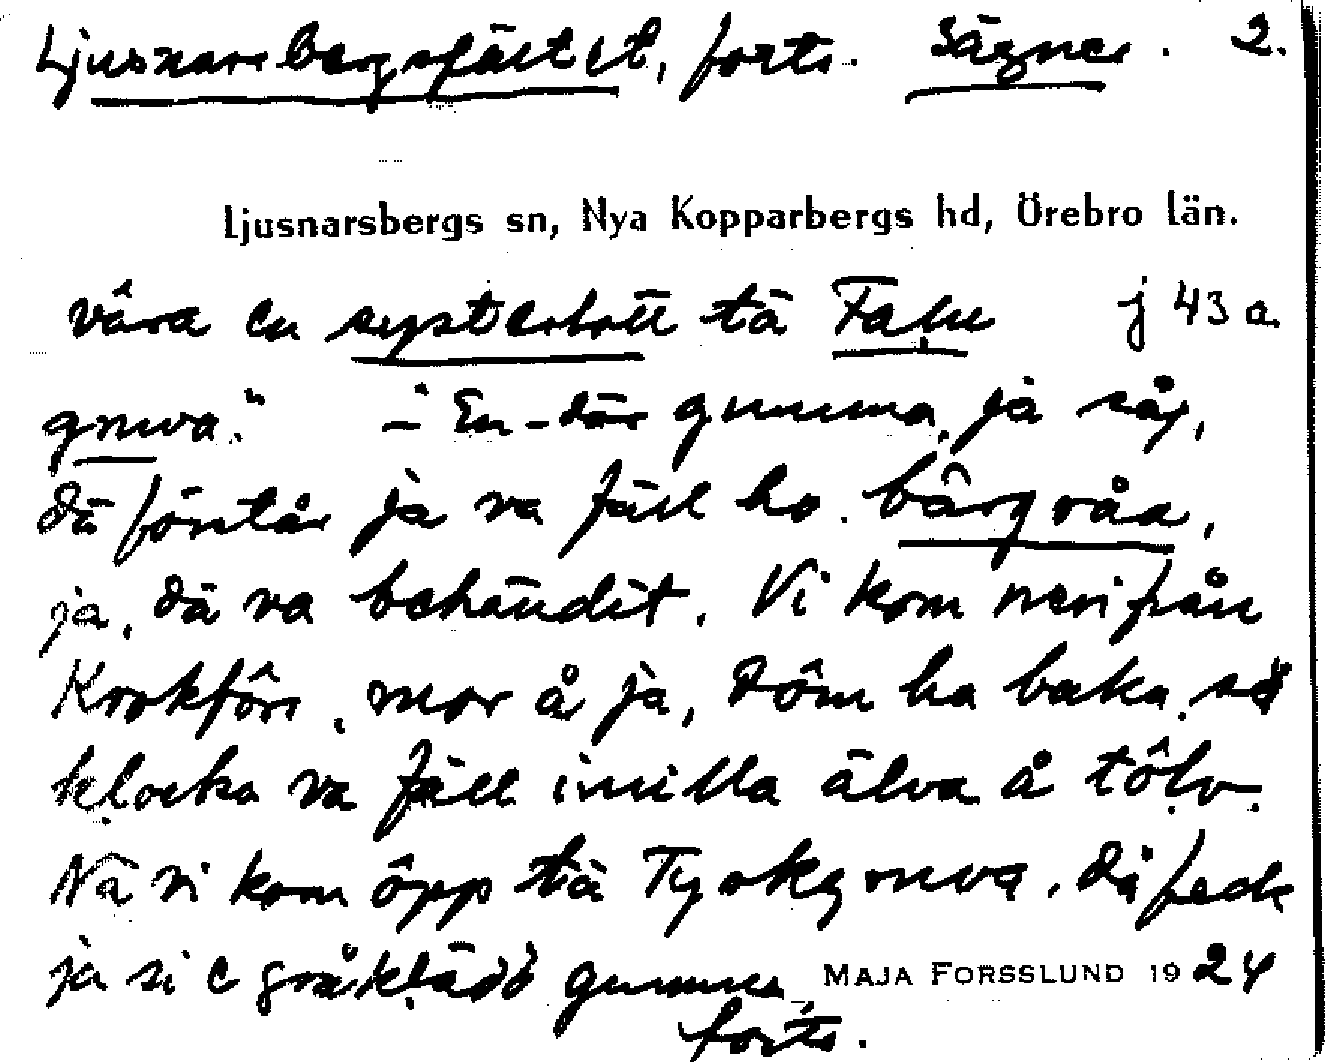 Ljusnarsbergsfältet, forts. Sägner. 2.
Ljusnarsbergs sn, Nya Kopparbergs hd, Örebro län.
vâra en systerlott tä Falu j 43 a
gruva." — "En-där gumma, jà såg,
dä förstår jà va fäll ho bârgråa,
ja, dä va behändit. Vi kom nerifrån
Krokfôrs, mor å jà, dôm ha baka, så
klocka va fäll imilla älva å tôlv.
Nä vi kom ôpp tä Tyskgruva, då feck
jà si e gråklädd gumma,
MAJA FORSSLUND 1924
forts.